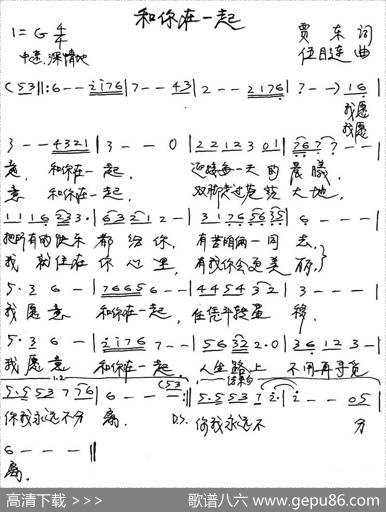 和你在一起
1=G 4/4 贾东 词
中速 深情地 伍月连 曲
(53‖: 6 - - i i 7 6 | 7 - - 4 3 | 2 - - 2 1 7 6 | ? - -) 1 6 |
我愿
我愿
3 - - 4 3 2 1 | 3 - - 0 | 2 2 1 2 3 0 1 | 7 6 7 - - |
意, 和你在一起, 迎接每一天的晨曦,
意 和你在一起, 双脚走过 大地,
1 1 1 6 5 3 3 · | 6 3 2 1 2 - - | 3 1 7 6 5 6 3 5 | 6 - - - |
把所有的快乐都给你, 有苦咱俩一同去,
我就住在你心里, 有我你会更美丽,
5 · 3 6 - | 7 6 6 5 6 - - | 4 4 5 4 3 2 | 3 - - - |
我愿意 和你在一起, 任凭斗转星移,
5 · 3 6 - | i i 7 6 7 - - | 5 6 3 2 2 · 0 | 3 6 1 2 3 - |
我愿意 和你在一起, 人生路上 不用再寻觅
1.2. (53
5 · 5 5 3 7 7 6 | 6 - - - :‖ 5 · 5 5 3 7 i | i - - 0 5 |
你我永远不分离. D.S. 你我永远不 分
6 - - - ‖
离.
高清下载 >>> 歌谱八六 www.gepu86.com